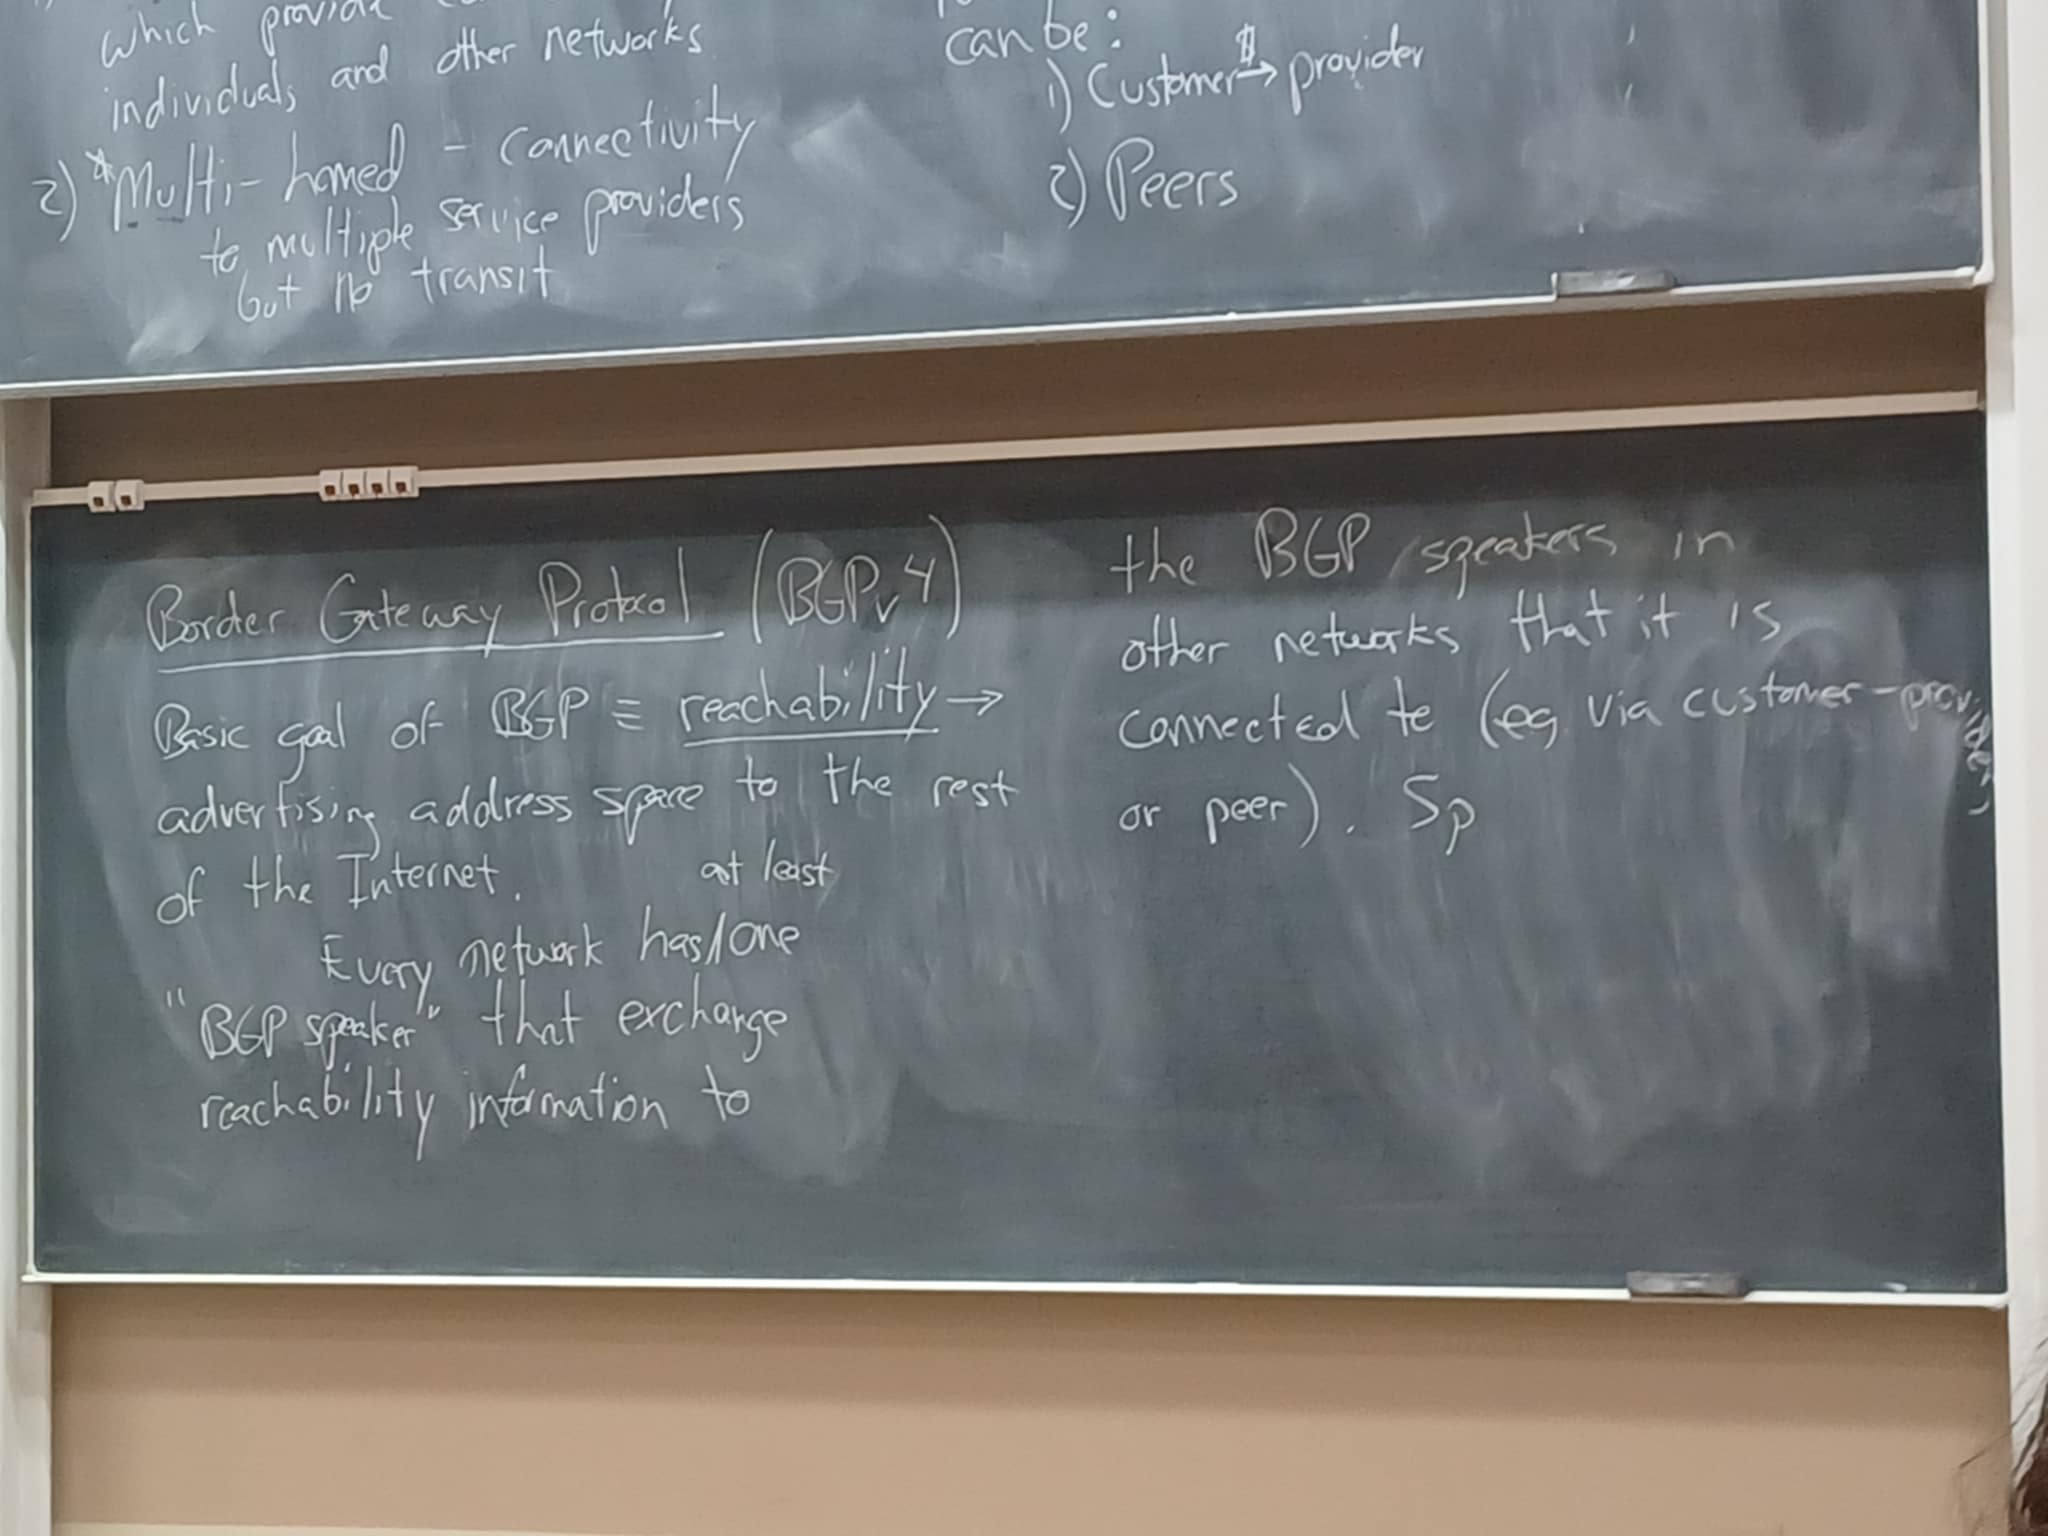 which provide
individuals and other networks
2) *Multi-homed - connectivity
to multiple service providers
but no transit
can be:
1) Customer $→ provider
2) Peers
Border Gateway Protocol (BGPv4)
Basic goal of BGP ≡ reachability →
advertising address space to the rest
of the Internet.
at least
Every network has/one
"BGP speaker" that exchange
reachability information to
the BGP speakers in
other networks that it is
connected to (eg. via customer-provider,
or peer). Sp